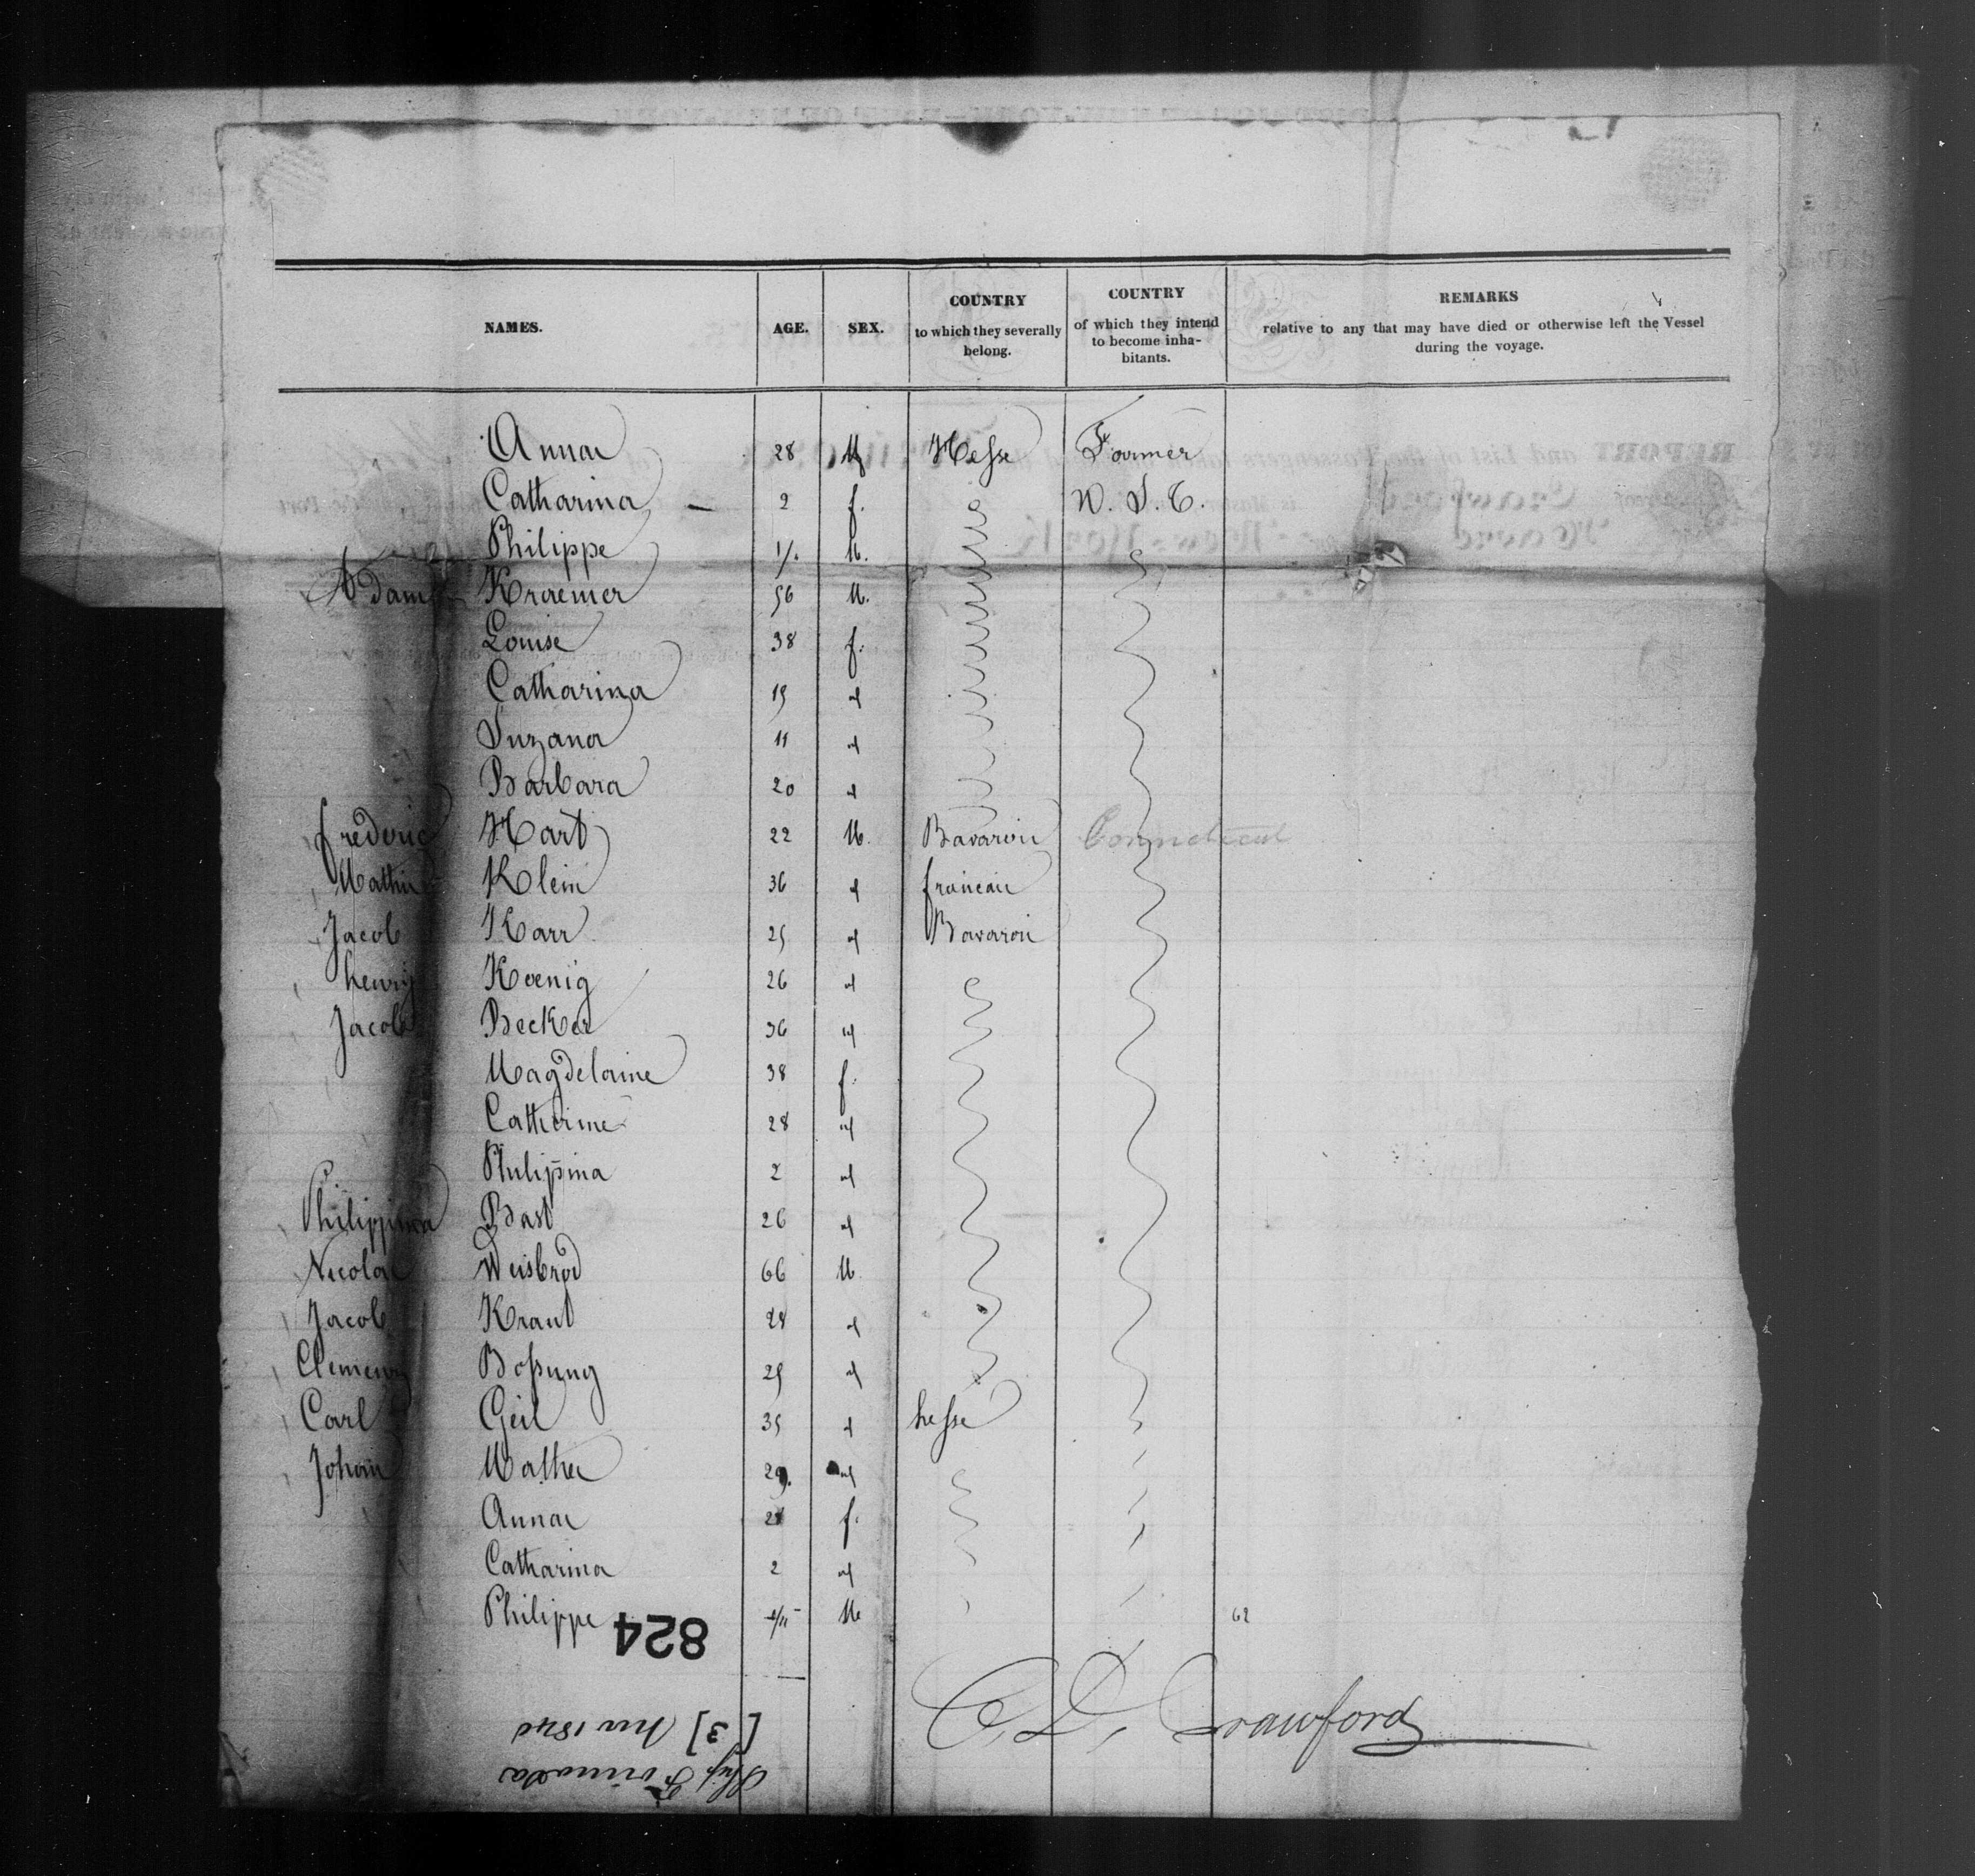 NAMES. AGE. SEX. COUNTRY to which they severally belong. COUNTRY of which they intend to become inhabitants. REMARKS relative to any that may have died or otherwise left the Vessel during the voyage.
Anna 28 M Hesse Farmer
Catharina — 2 f.
Philippe M.
Adam Kraemer 56 M.
Louise 38 f.
Catharina 15 "
Suzana 11 "
Barbara 20 "
frederic Hart 22 M. Bavaroii Connecticut
Klein 36 "
Jacob Karr 25 " Bavaroii
henry Koenig 26 "
Jacob Becker 36 "
Magdelaine 38 f.
Catherine 28 "
Philipina 2 "
Philippina Bast 26 "
Nicolai Weisbrod 66 M.
Jacob Kraut 28 "
Boßung 25 "
Carl Geil 35 " hesse
Johan 29. "
Anna 28 f.
Catharina 2 "
Philippe M 62
824
C. D. Crawford
[3]
Ship